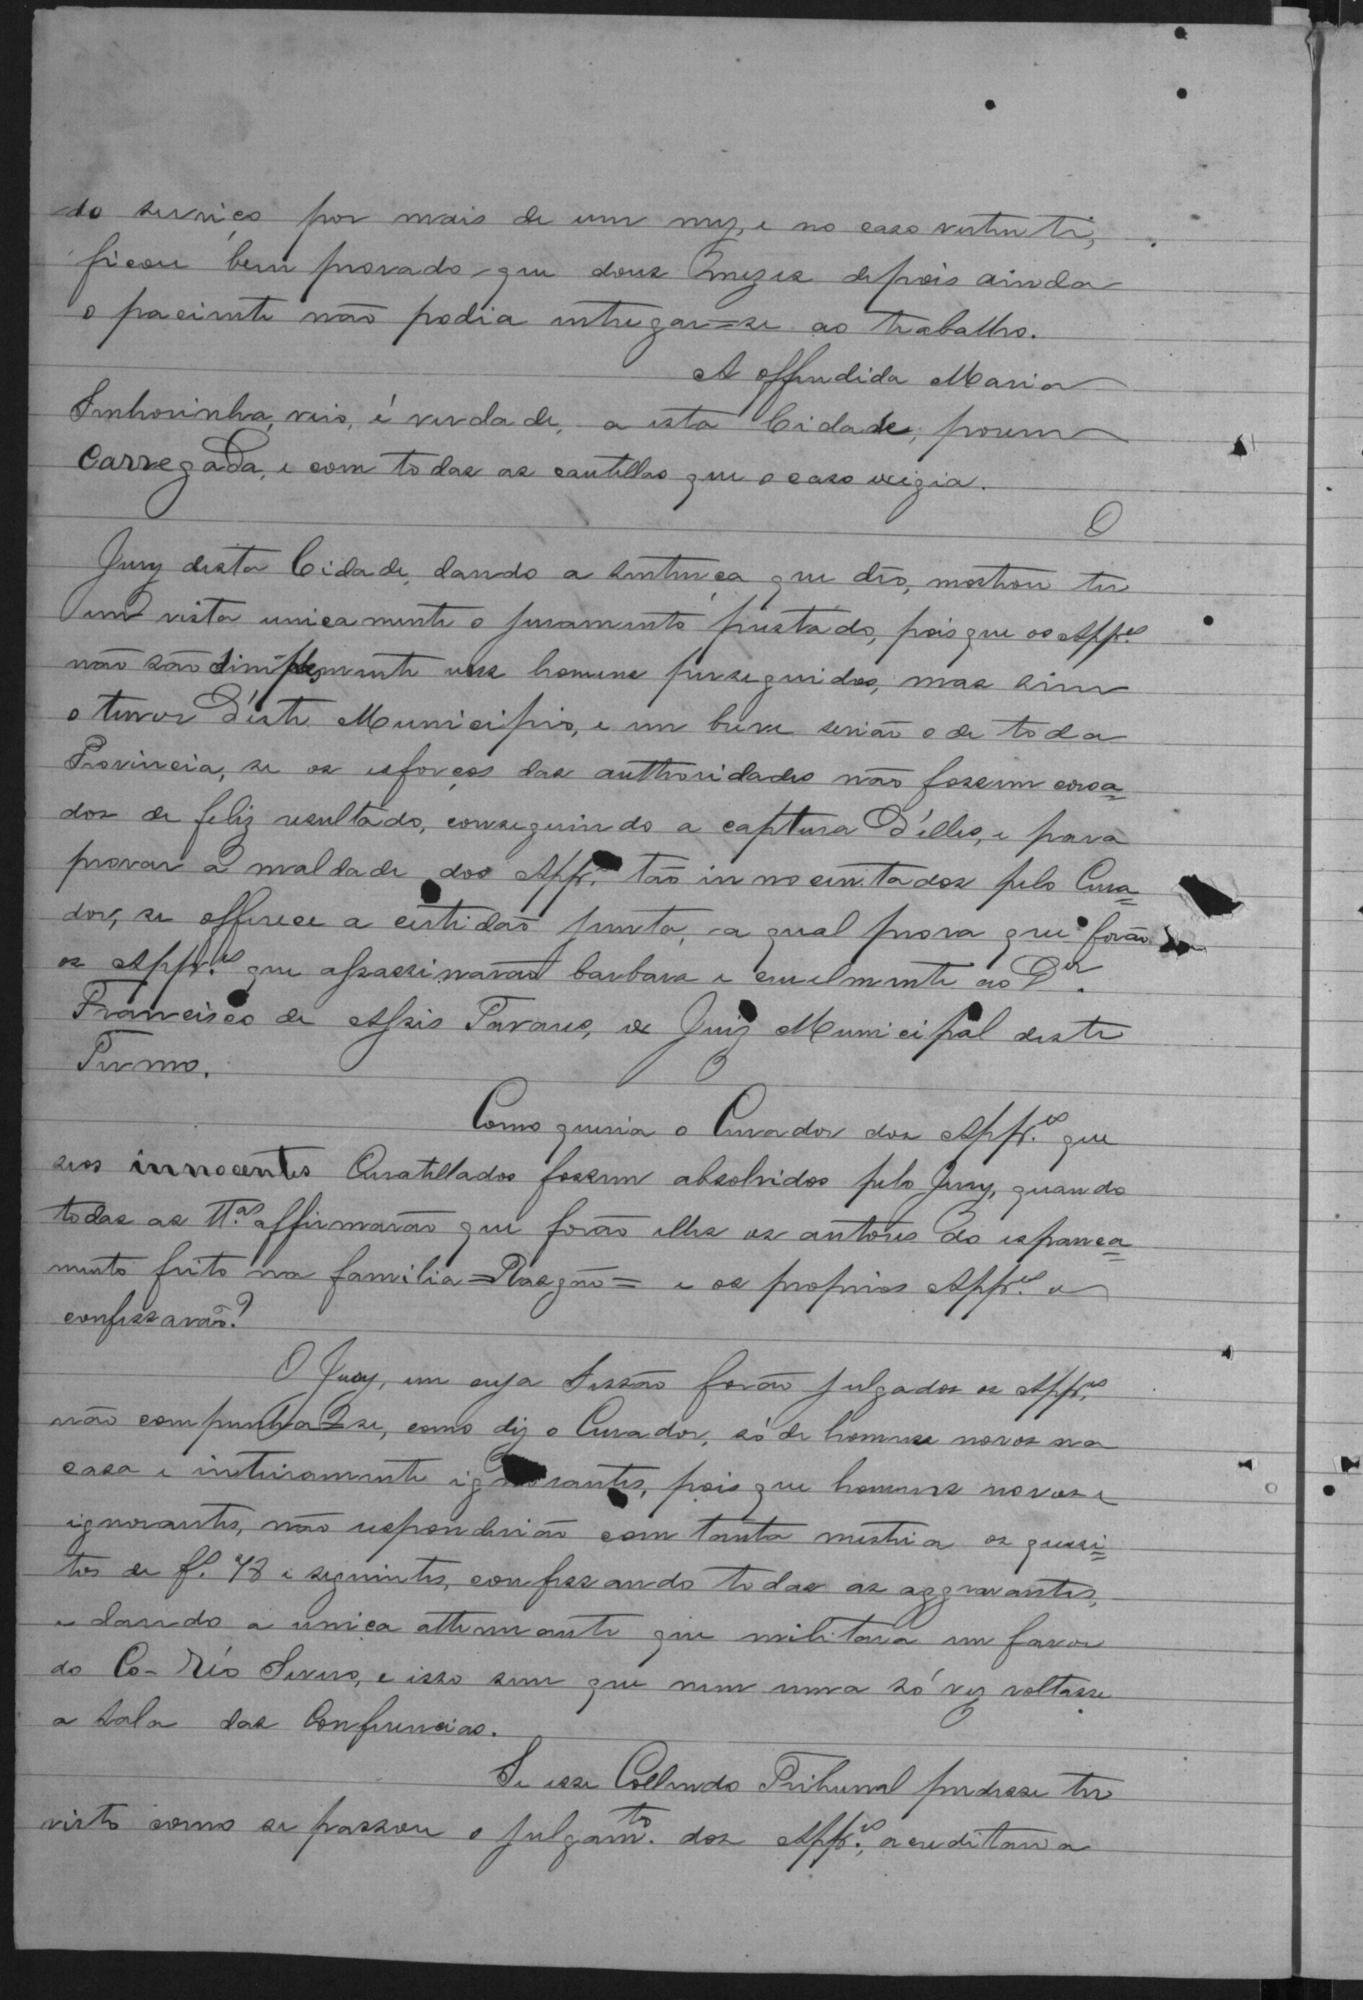 do serviço por mais de um mez, e no caso vertente,
ficou bem provado que dous mezes depois ainda
o paciente não podia entregar=se ao trabalho.
A offendida Maria
Senhorinha, veio, é verdade, a esta Cidade, porem
carregada, e com todas as cautellas que o caso exigia.
O
Jury desta Cidade, dando a sentença que deo, mostrou ter
em vista unicamente o juramento prestado, pois que os App.es
não são simplesmente uns homens perseguidos, mas sim
o terror d'este Municipio, e em breve serião o de toda
Provincia, se os esforços das authoridades não fossem coroa=
dos de feliz resultado, conseguindo a captura d'elles, e para
provar a maldade dos App. tão innocentados pelo Cura=
dor, se offerece a certidão junta, a qual prova que forão
os App.es que assassinarão barbara e cruelmente ao Dr.
Francisco de Assis Tavares, Juiz Municipal deste
Termo.
Como queria o Curador dos App.es que
seos innocentes Curatellados fossem absolvidos pelo Jury, quando
todas as TT.as affirmarão que forão elles os autores do espanca=
mento feito na familia = Rasgão = e os proprios App.es o
confessarão?
O Jury, em cuja Sessão forão julgados os App.es
não compunha=se, como diz o Curador, só de homens novos na
casa e inteiramente ignorantes, pois que homens novos e
ignorantes, não responderião com tanta mestria os quesi=
tos de f. 48 e seguintes, confessando todas as aggravantes,
e dando a unica attenuante que militava em favor
do Co-Réo Severo, e isso sem que nem uma só vez voltasse
a sala das Conferencias.
Se esse Collendo Tribunal podesse ter
visto como se passou o julgam.to dos App.es, acreditaria